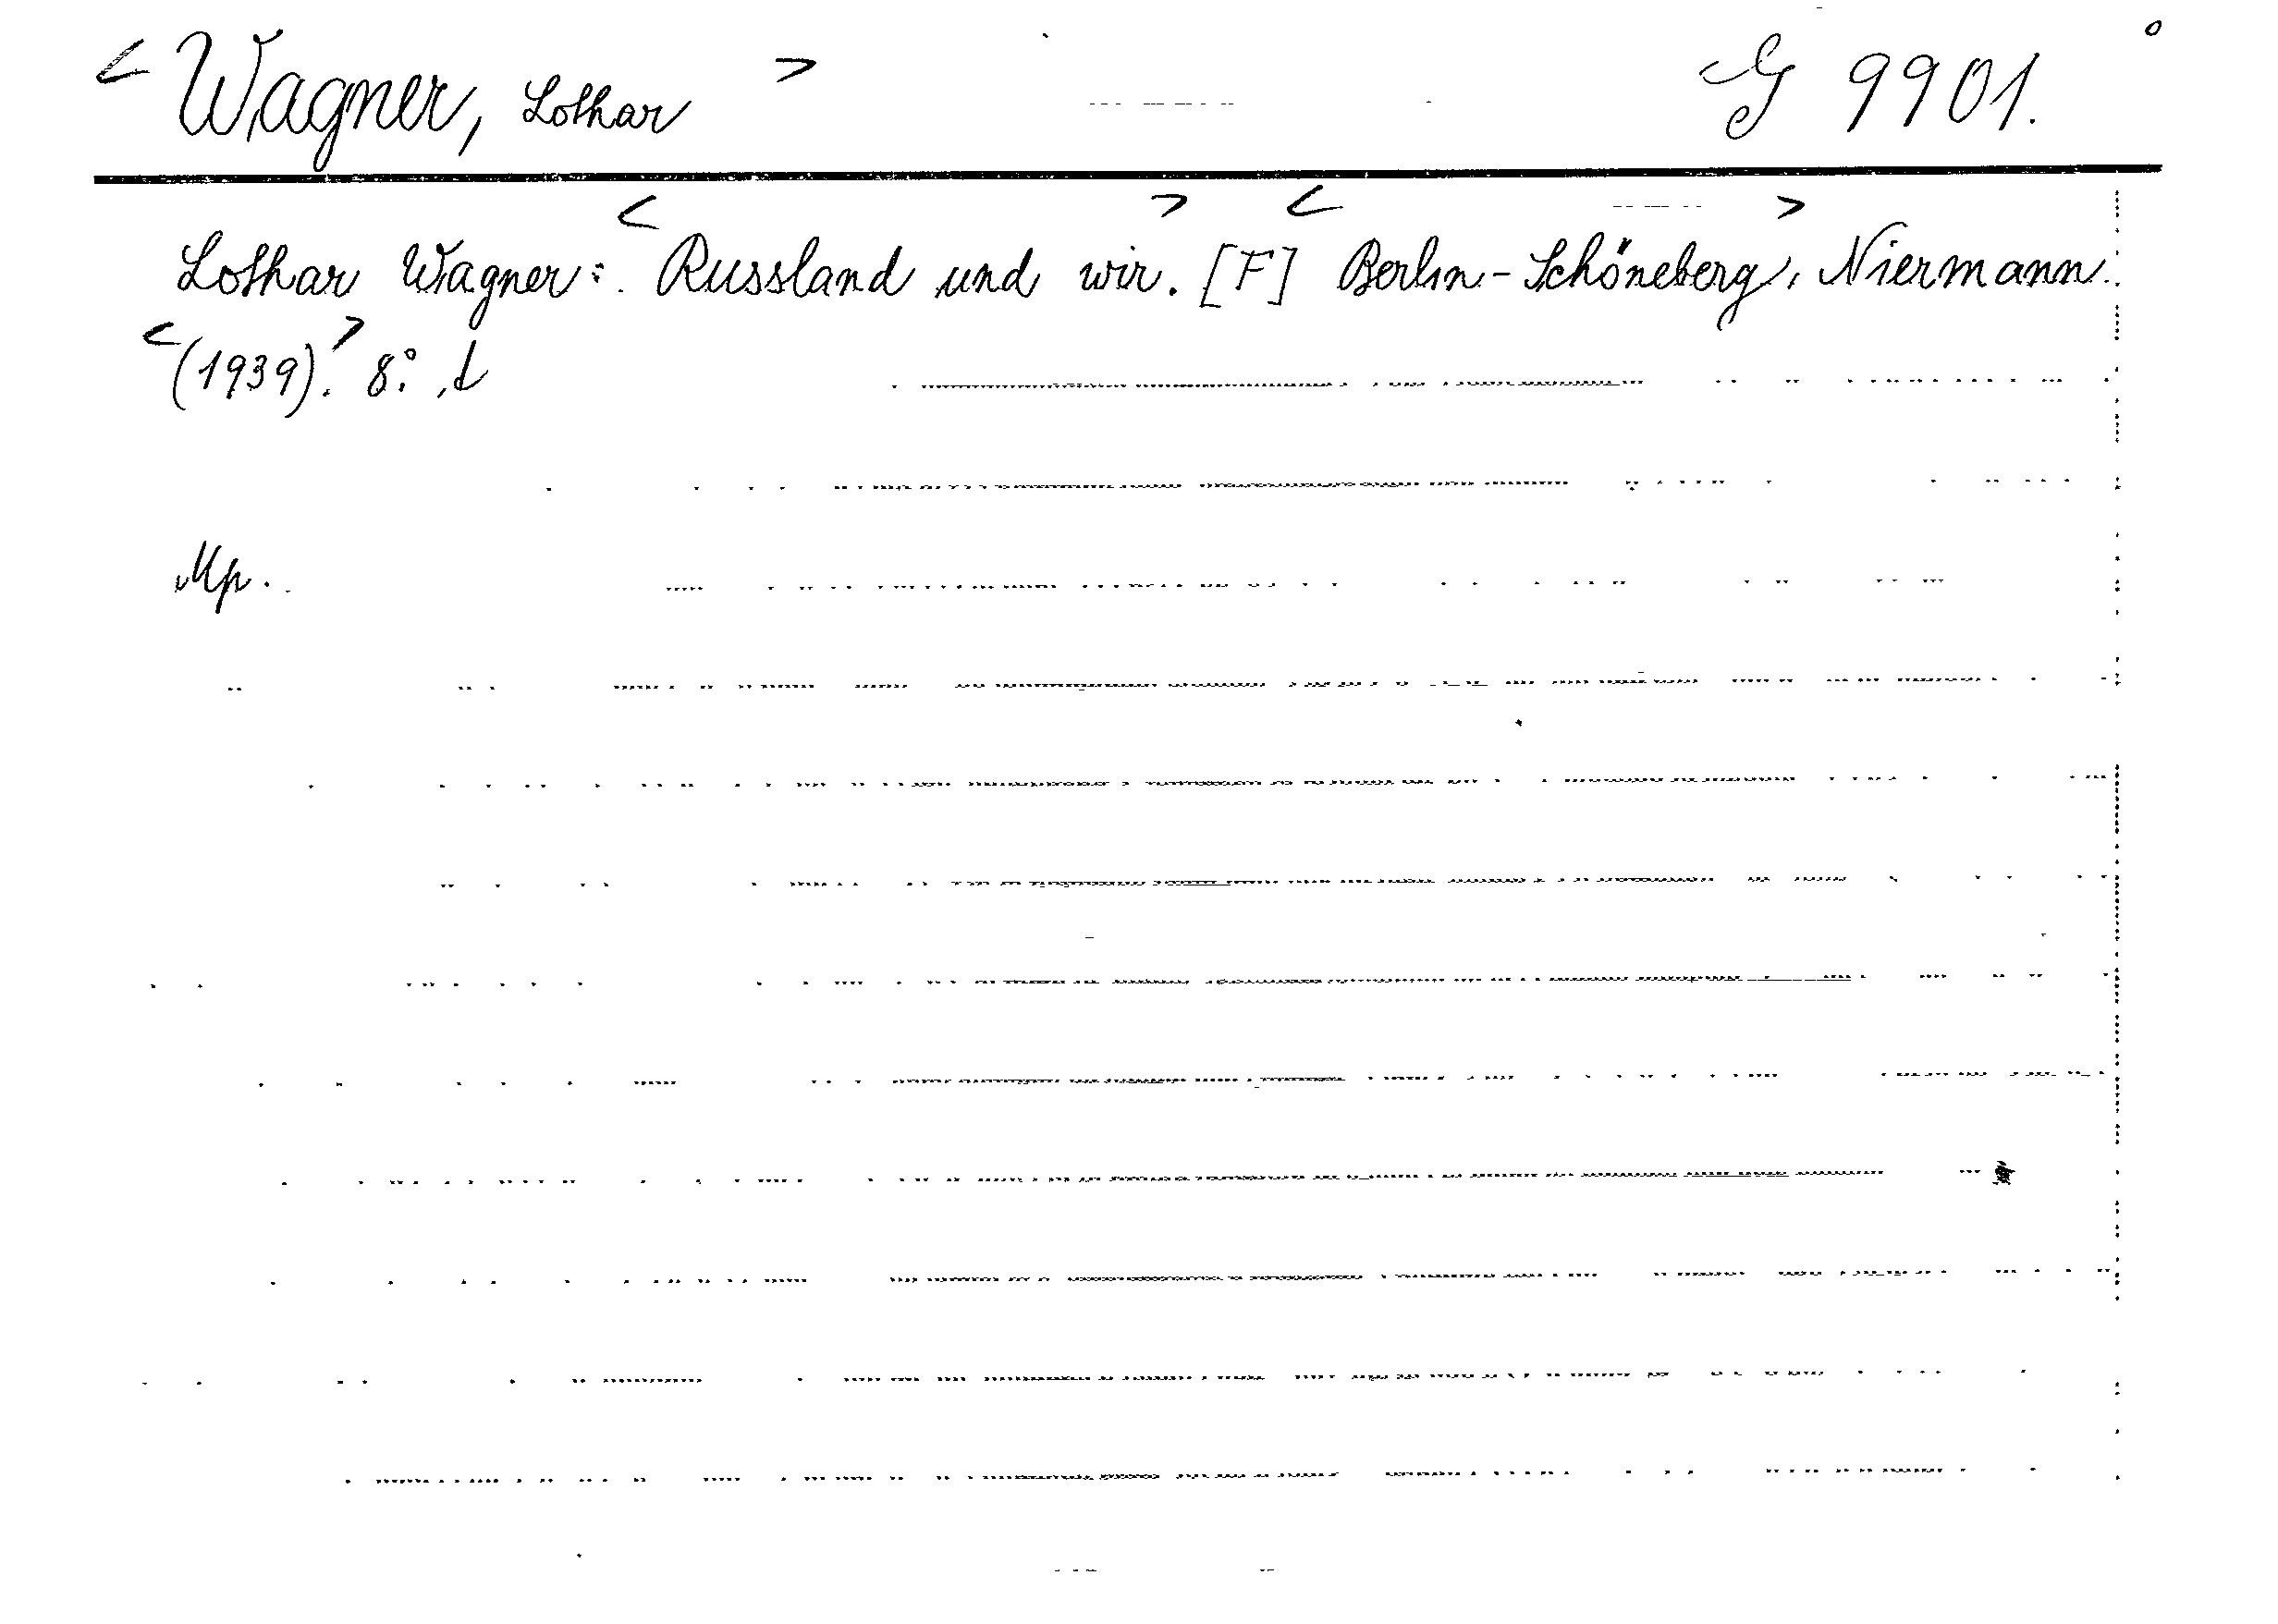 < Wagner, Lothar > G 9901.
Lothar Wagner: < Russland und wir. > [F] < Berlin-Schöneberg >, Niermann
< (1939). > 8°.
Mp.